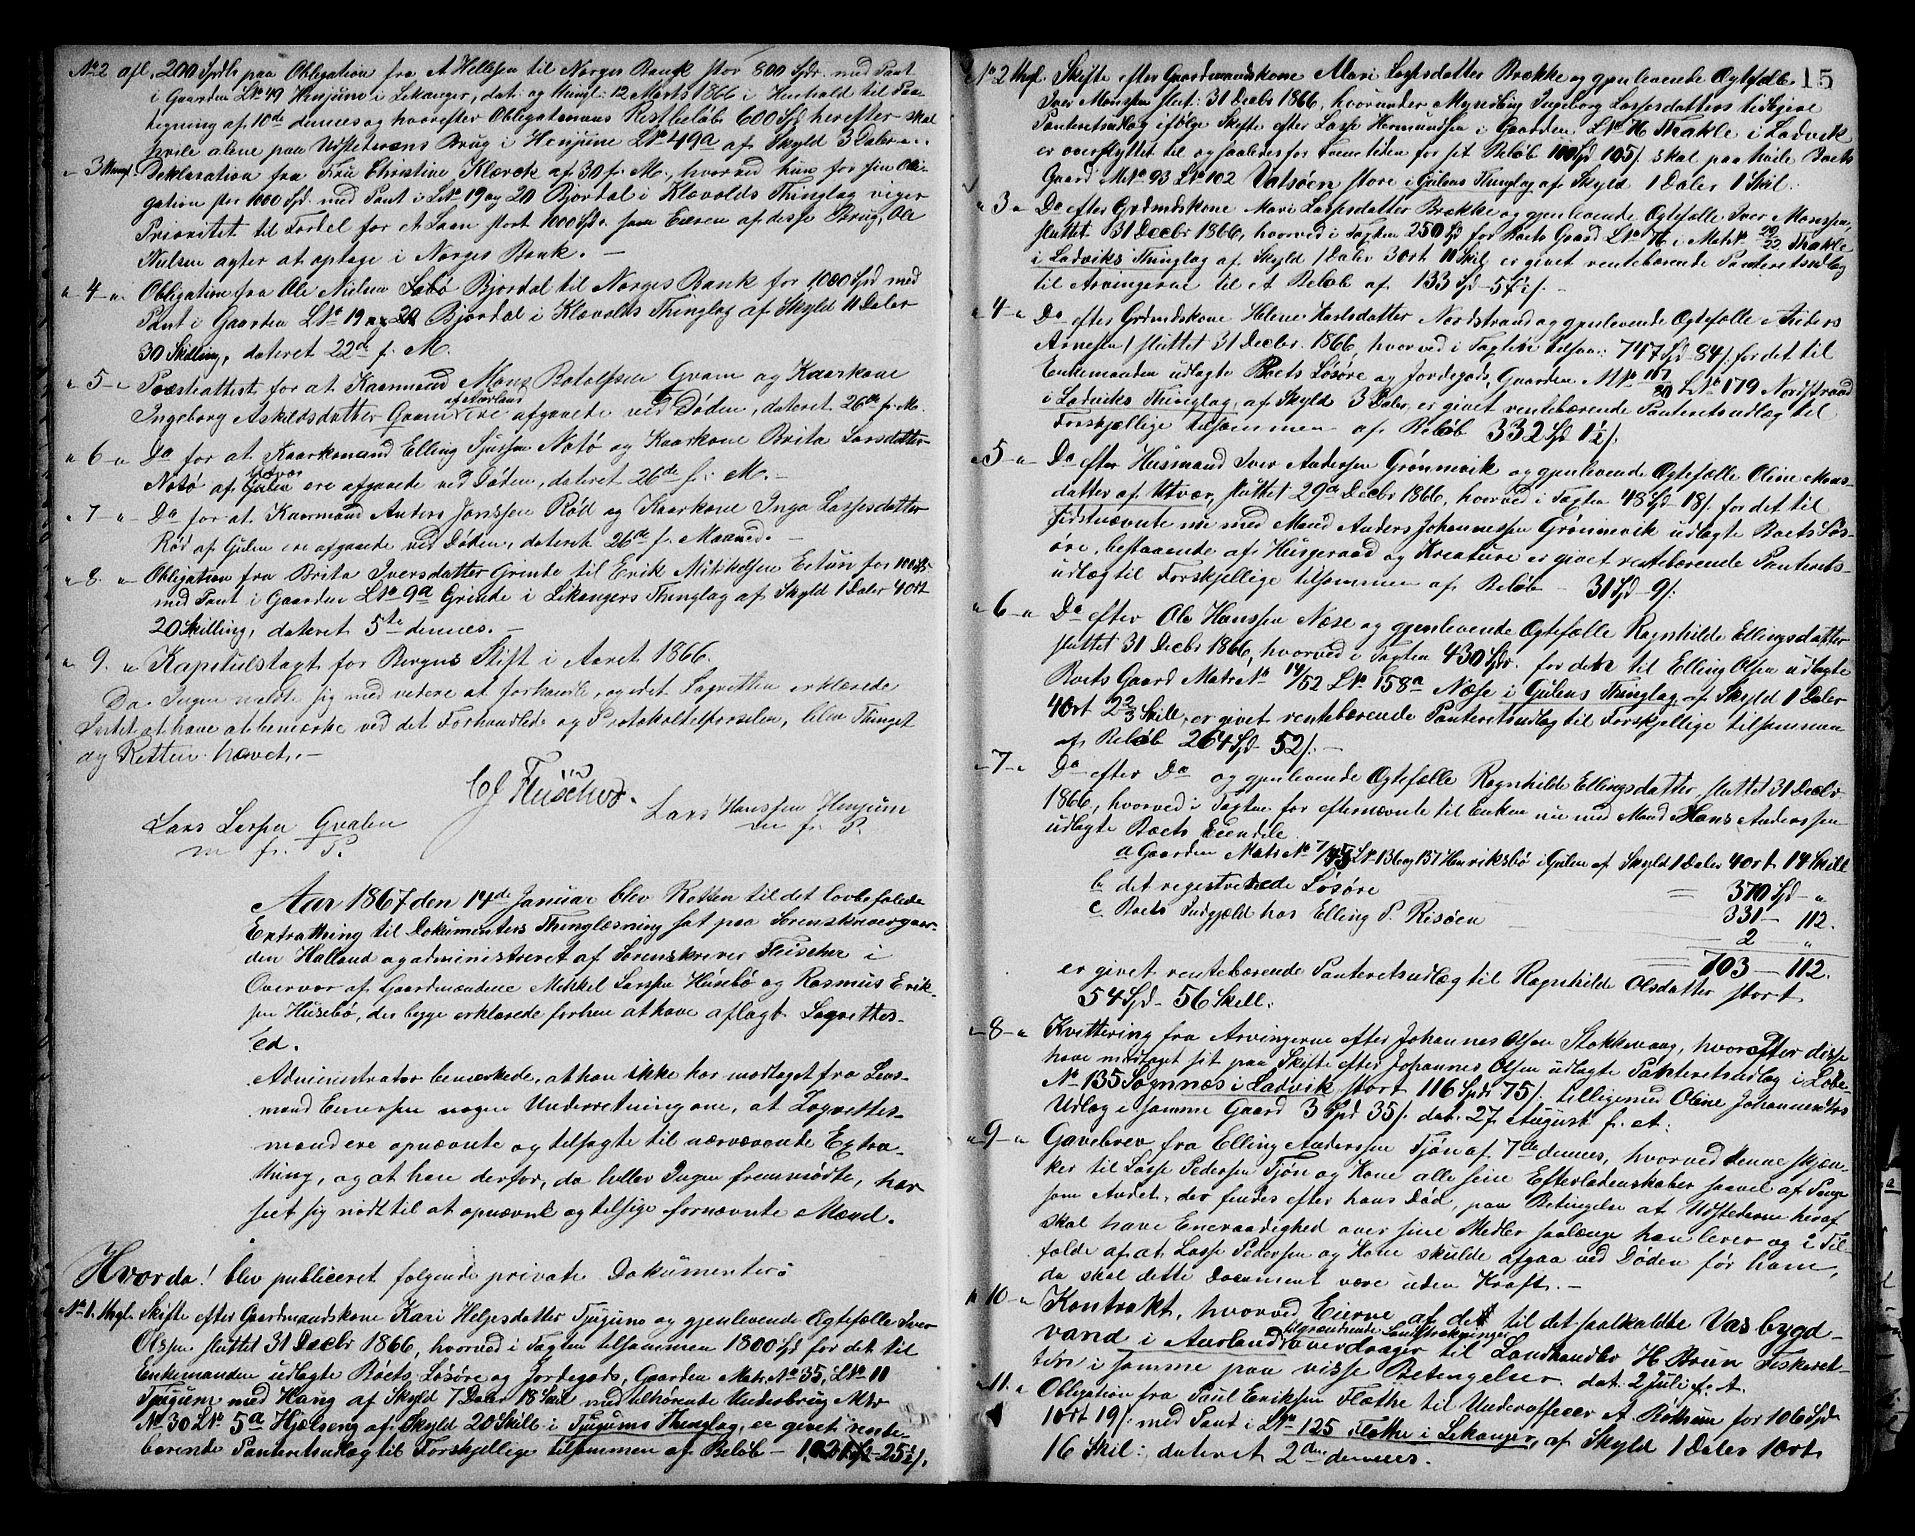 No 2 afl. 200 Spdlr paa Obligation fra A Hellesen til Norges Bank stor 800 Spdr. med Pant
i Gaarden LNo 49 Henjum i Lekanger, dat: og thingl: 12 Marts 1866 i Henhold til Paa-
tegning af 10de dennes og hvorefter Obligationens Restbeløb 600 Spd herefter skal
hvile alene paa Udstederens Brug i Henjum LNo 49a af Skyld 3 Daler.
" 3 thingl. Deklaration fra Fru Christine Klærck af 30 f. M., hvorved hun for sin Obli-
gation stor 1000 Spd. med Pant i LNo 19 og 20 Bjordal i Klævolds Thinglag viger
Prioritet til Fordel for et Laan stort 1000 Spd. som Eieren af desse Brug, Ole
Nielsen agter at optage i Norges Bank. -
" 4 " Obligation fra Ole Nielsen Søbø Bjordal til Norges Bank for 1,000 Spd med
Pant i Gaarden LNo 19 og 20 Bjordal i Klævolds Thinglag af Skyld 11 Daler
30 Skilling, dateret 22de f. M.
" 5 " Præstiattest for at Kaarmand Mons Botolfsen Gram og Kaarkone
af Aurland
Ingeborg Askildsdatter Gram ere afgaaede ved Døden, dateret 26de f. M.
" 6 " Do for at Kaarkemand Elling Sjursen Notø og Kaarkone Brita Larsdatter
Udvær
Notø af Gulen ere afgaaede ved Døden, dateret 26de f. M. -
" 7 " Do for at Kaarmand Anders Jonssen Rød og Kaarkone Inga Lassesdatter
Rød af Gulen ere afgaaede ved Døden, dateret 26de f. Maaned. -
" 8. " Obligation fra Brita Iversdatter Grinde til Erik Mikkelsen Eitun for 100 Spd
med Pant i Gaarden LNo 9a Grinde i Lekangers Thinglag af Skyld 1 Daler 4 ort
20 Skilling, dateret 5te dennes. -
" 9. " Kapitulstagt for Bergens Stift i Aaret 1866.
Da Ingen meldte sig med videre at forhandle, og idet Lagretten erklærede
Intet at have at bemærke ved det Forhandlede og Protokoltilførselen, blev Thinget
og Retten hævet. -
CJ Flüscher.
Lars Larsen Qvalen
m. f. P.
Lars Hanssen Henjum
m f. P.
Aar 1867 den 14de Januar blev Retten til det lovbefalede
Extrathing til Dokumenters Thinglæsning sat paa Sorenskrivergaar-
den Halland og administreret af Sorenskriver Flüscher i
Overvær af Gaardmændene Mikkel Larsen Husebø og Rasmus Erik-
sen Husebø, der begge erklærede forhen at have aflagt Lagrettes-
ed.
Administrator bemærkede, at han ikke har modtaget fra Lens-
mand Einersen nogen Underretning om, at Lagrettes-
mænd ere opnævnte og tilsagte til nærværende Extra-
thing, og at han derfor, da heller Ingen fremmødte, har
seet sig nødt til at opnævne og tilsige fornævnte Mænd.
Hvorda! blev publiceret følgende private Dokumenter:
No 1. thgl. Skifte efter Gaardmandskone Kari Helgesdatter Tjugum og gjenlevende Ægtefælle Iver
Olsen sluttet 31 Decbr 1866, hvorved i Tagten tilsammen 1800 Spd for det til
Enkemanden udlagte Boets Løsøre og Jordegods, Gaarden Matr. No 35, LNo 11
Tjugum med Haug af Skyld 7 Daler 18 Skil med tilhørende Underbrug Mtr
No 30 LNo 5a Hjælseng af Skyld 20 Skill i Tjugums Thinglag, er givet rente-
bærende Panteretsudlæg til Forskjellige tilsammen af Beløb - 1,021 Spd 25½ /.
15
No 2 thgl. Skifte efter Gaardmandskone Mari Lassesdatter Brække og gjenlevende Ægtefælle
Iver Monsen slut: 31 Decbr 1866, hvorunder Myndling Ingeborg Lassesdatters tidligere
Panteretsudlæg ifølge Skifte efter Lasse Hermundsen i Gaarden LNo 76 Thakle i Ladvik
er overflyttet til og saaledes for Fremtiden for sit Beløb 100 Spd 105 /. skal paa hvile Boets
Gaard M.No 93 LNo 102 Vatsøen store i Gulens Thinglag af Skyld 1 Daler 1 Skil.:
" 3 " Do efter Grdmdskone Mari Lassesdatter Brække og gjenlevende Ægtefælle Iver Monssen,
sluttet 31 Decbr 1866, hvorved i Tagten 250 Spd for Boets Gaard LNo 76 i MatNo 20/22 Thakle
i Ladviks Thinglag af Skyld 1 Daler 3 ort 11 Skil er givet rentebærende Panteretsudlæg
til Arvingerne til et Beløb af 133 Spd 57½ /. -
" 4 " Do efter Grdmdskone Helene Karlsdatter Nordstrand og gjenlevende Ægtefælle Anders
Arnesen, sluttet 31 Decbr. 1866, hvorved i Tagten tilsam: 747 Spd 84 /. for det til
Enkemanden udlagte Boets Løsøre og Jordegods, Gaarden MNo 117/20 LNo 179 Nordstrand
i Ladviks Thinglag, af Skyld 3 Daler, er givet rentebærende Panteretsudlæg til
Forskjællige tilsammen af Beløb 332 Spd 1½ /.
" 5 " Do efter Husmand Iver Andersen Grønnevik og gjenlevende Ægtefælle Oline Mons-
datter af Utvær, sluttet 29de Decbr 1866, hvorved i Tagten 48 Spd 18 /. for det til
Førstnævnte nu med Mand Anders Johannessen Grønnevik udlagte Boets Løs-
øre, bestaaende af Husgeraad og Kreature er givet rentebærende Panterets-
udlæg til Forskjellige tilsammen af Beløb - 31 Spd 9 /.
" 6 " Do efter Ole Hanssen Næse og gjenlevende Ægtefælle Ragnhilde Ellingsdatter
sluttet 31 Decbr 1866, hvorved i Tagten 430 Spdr. for det til Elling Olsen udlagte
Boets Gaard Matr No 14/52 LNo 158a Næse i Gulens Thinglag af Skyld 1 Daler
4 ort 2 2/3 Skill, er givet rentebærende Panteretsudlæg til Forskjellige tilsammen
af Beløb 264 Spd 52 /. -
" 7 " Do efter Do og gjenlevende Ægtefælle Ragnhilde Ellingsdatter sluttet 31 Decbr
1866, hvorved i Tagten for efternævnte til Enken nu med Mand Hans Anderssen
udlagte Boets Eiendele
a Gaarden Matr No 7/45 LNo 136 og 137 Henriksbø i Gulen af Skyld 1 Daler 4 ort 14 Skill
= 370 Spd "
b det registrerede Løsøre = 331 - 112.
c. Boets Indgjæld hos Elling P. Risøen 2 "
703 - 112.
er givet rentebærende Panteretsudlæg til Ragnhilde Olsdatter stort
54 Spd - 56 Skill.
" 8 " Kvittering fra Arvingerne efter Johannes Olsen Stokkevaag, hvorefter disse
have modtaget sit paa Skifte efter Johannes Olsen udlagte Panteretsudlæg i Løbe
No 135 Sognnæs i Ladvik stort 116 Spd 75 /. tilligemed Oline Johannesdtrs
Udlæg i samme Gaard 3 Spd 35 /. dat. 27 August f. A:
" 9 " Gavebrev fra Elling Anderssen Tjøn af 7de dennes, hvorved denne skjæn-
ker til Lasse Pedersen Tjøn og Kone alle sine Efterladenskaber saavel af Penge
som Andet, der findes efter hans Død, paa Betingelse at Udstederen heraf
skal have Eneraadighed over sine Midler saalænge han lever og i Til-
fælde af at Lasse Pedersen og Kone skulde afgaa ved Døden før ham,
da skal dette Document være uden Kraft. -
" 10 " Kontrakt, hvorved Eierne af de til det saakaldte Vasbygd-
tilgrændsende Landstrækninger
vand i Aurland overdrager til Landhandler H. Brun Fiskeret-
ten i samme paa visse Betingelser, dat. 2 Juli f. A.
" 11. " Obligation fra Paul Eriksen Flæthe til Underofficer A Rotnum for 106 Spdr
1 ort 19 /. med Pant i LNo 125 Flæthe i Lekanger, af Skyld 1 Daler 1 ort
16 Skil: dateret 2den dennes.